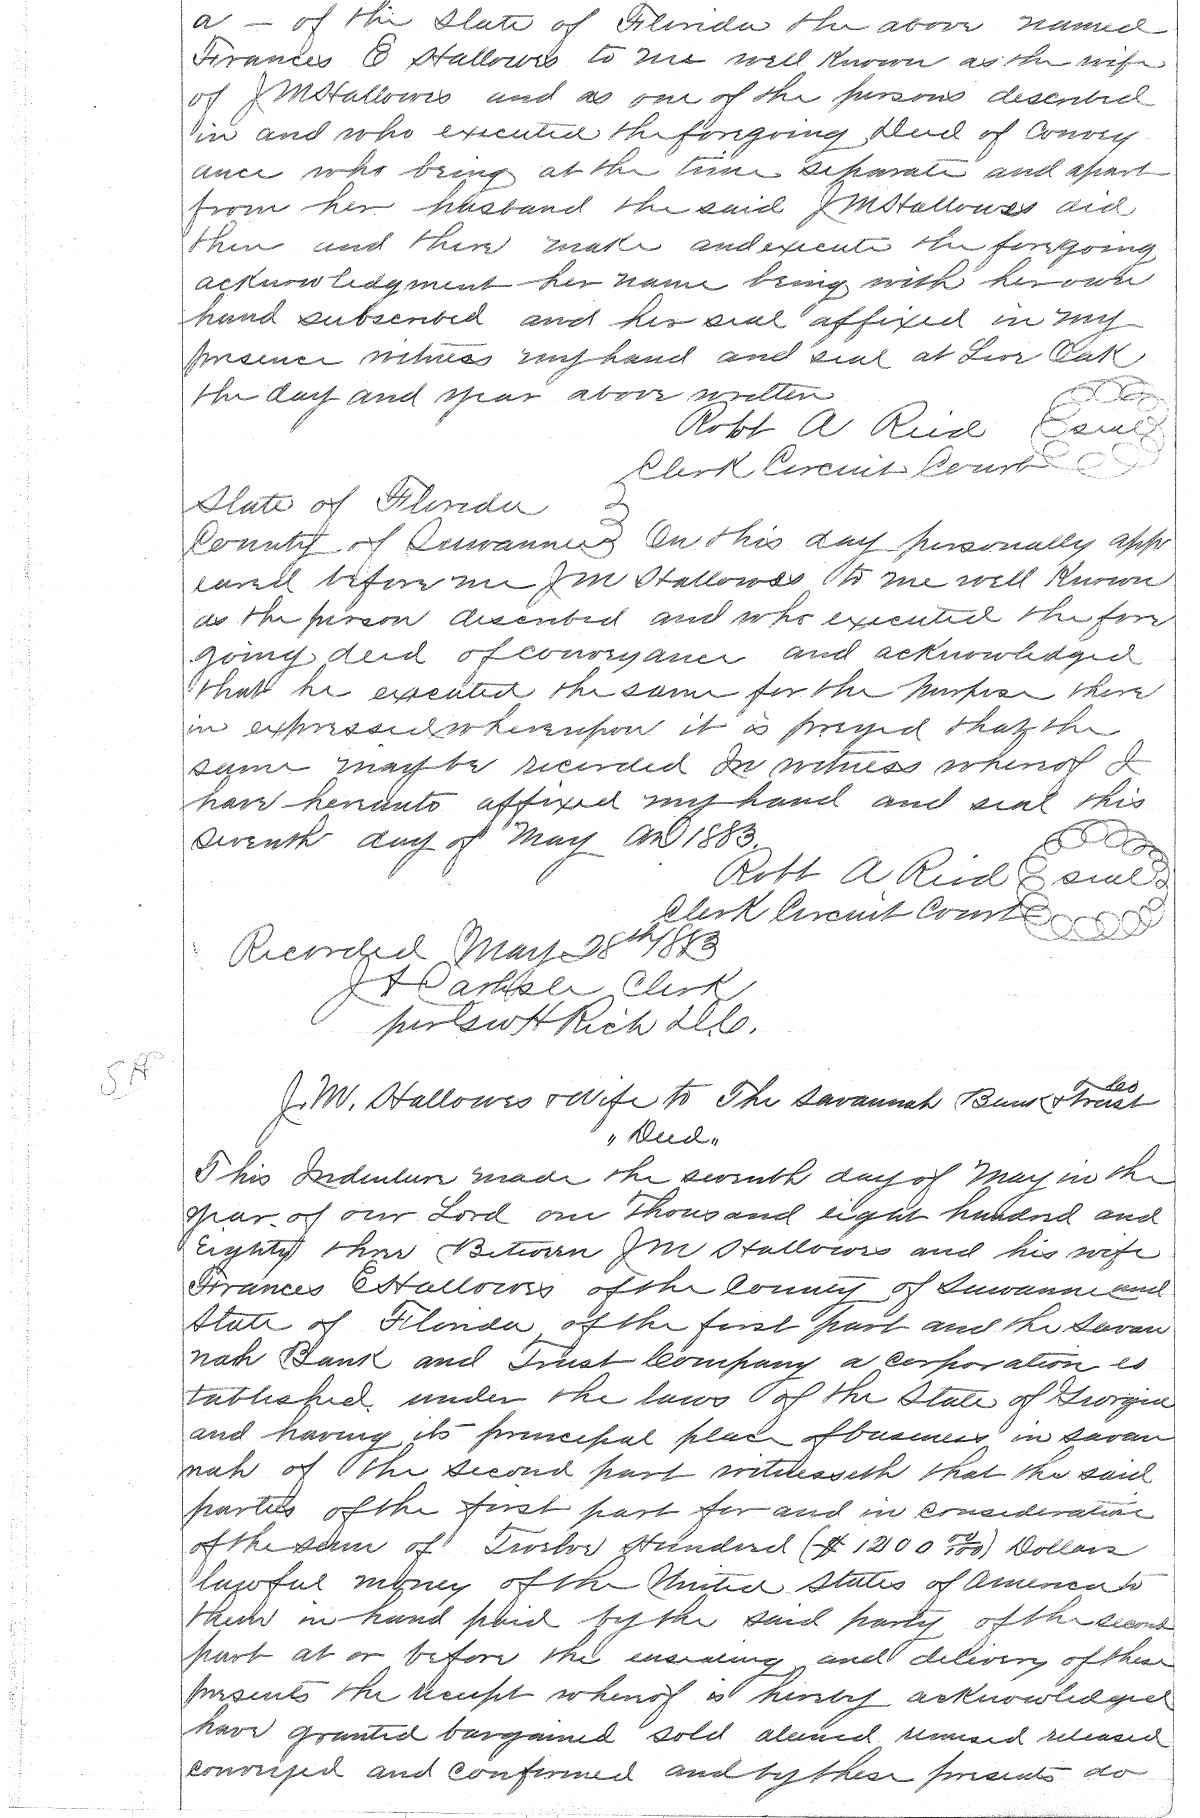 a - of the State of Florida the above named
Frances E Hallowes to me well Known as the wife
of J M Hallowes and as one of the persons described
in and who executed the foregoing Deed of Convey
ance who being at the time separate and apart
from her husband the said J M Hallowes did
then and there make and execute the foregoing
acknowledgment her name being with her own
hand subscribed and her seal affixed in my
presence witness my hand and seal at Live Oak
the day and year above written
Robt A Reid seal
Clerk Circuit Court
State of Florida
County of Suwannee On this day personally app
eared before me J M Hallowes to me well Known
as the person described and who executed the fore
going deed of conveyance and acknowledged
that he executed the same for the purpose there
in expressed whereupon it is preyed that the
same may be recorded In witness whereof I
have hereunto affixed my hand and seal this
seventh day of May AD 1883.
Robt A Reid seal
Clerk Circuit Court
Recorded May 28th 1883
Carlisle Clerk
per Geo H Rich D.C.
J. M. Hallowes & Wife to The Savannah Bank & Trust Co
"Deed"
This Indenture made the seventh day of May in the
year of our Lord one Thousand eight hundred and
Eighty three Between J M Hallowes and his wife
Frances E Hallowes of the County of Suwannee and
State of Florida of the first part and the Savan
nah Bank and Trust Company a corporation es
tablished under the laws of the State of Georgia
and having its principal place of business in Savan
nah of the second part witnesseth that the said
parties of the first part for and in consideration
of the sum of Twelve Hundred ($1200 00/100) Dollars
lawful money of the United States of America to
them in hand paid by the said party of the second
part at or before the ensealing and delivery of these
presents the receipt whereof is hereby acknowledged
have granted bargained sold aliened remised released
conveyed and confirmed and by these presents do